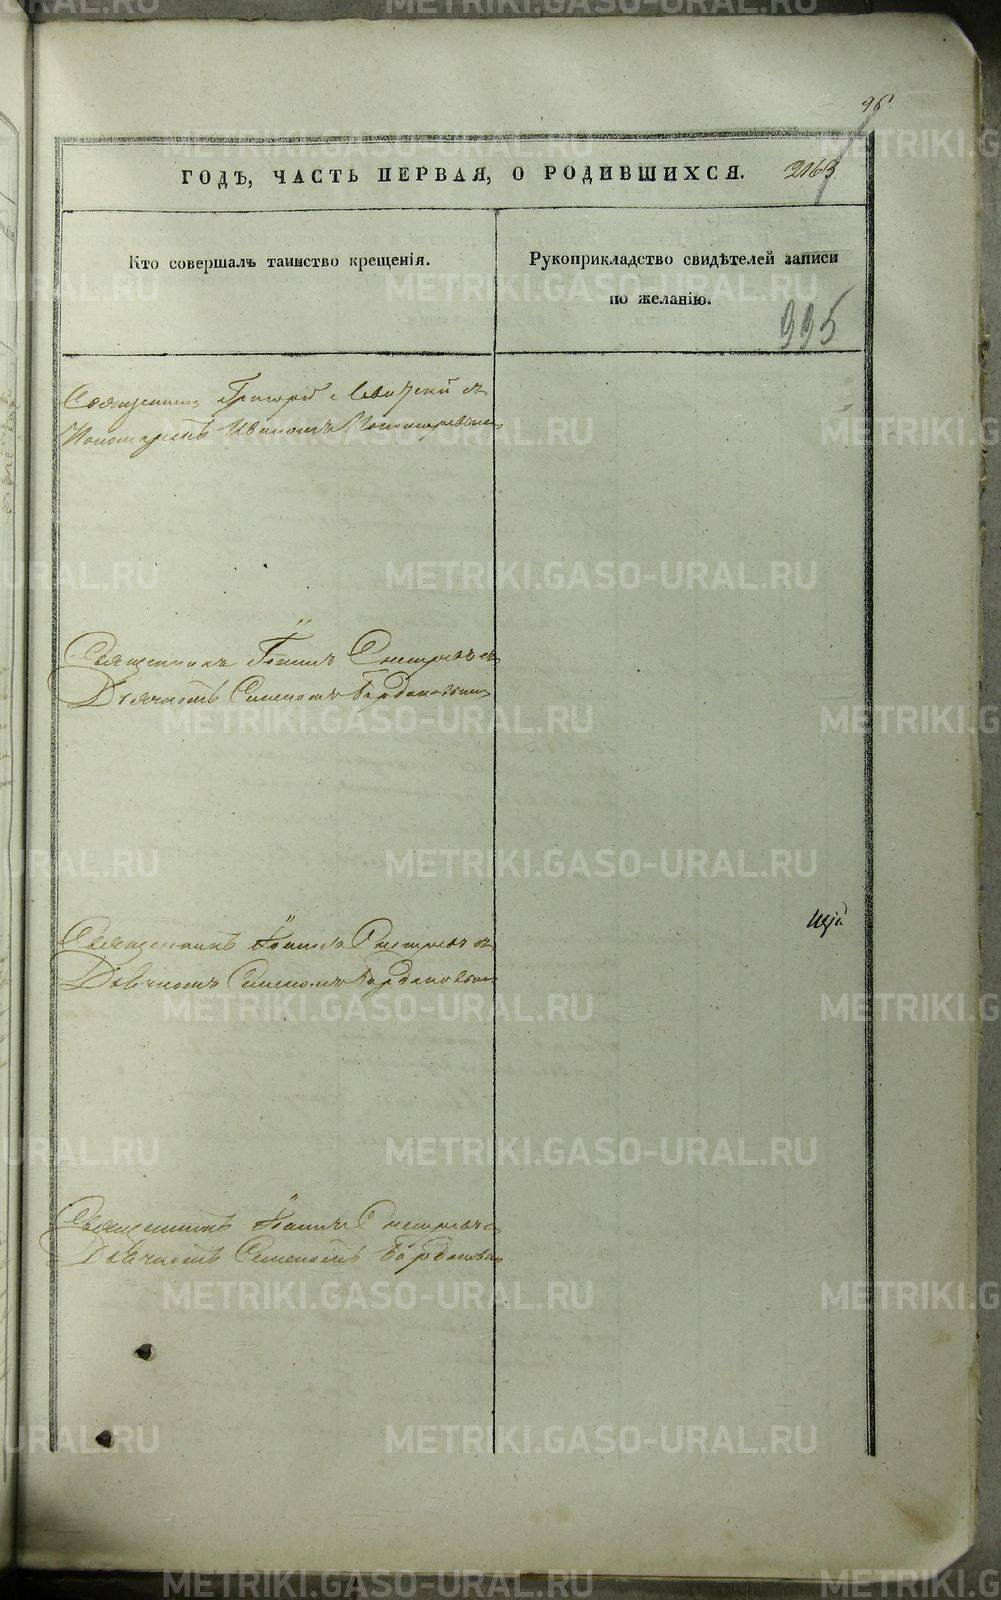 96.
ГОДЪ, ЧАСТЬ ПЕРВАЯ, О РОДИВШИХСЯ. 2163
Кто совершалъ таинство крещенія.
Рукоприкладство свидѣтелей записи
по желанію.
995
Священникъ Григорій Левитскій съ
Пономаремъ Иваномъ Пономаревымъ
Священникъ Іоаннъ Снегиревъ съ
Дьячкомъ Семеномъ Бордаковымъ
Священникъ Іоаннъ Снегиревъ съ
Дьячкомъ Семеномъ Бордаковымъ
Священникъ Іоаннъ Снегиревъ съ
Дьячкомъ Семеномъ Бордаковымъ
METRIKI.GASO-URAL.RU